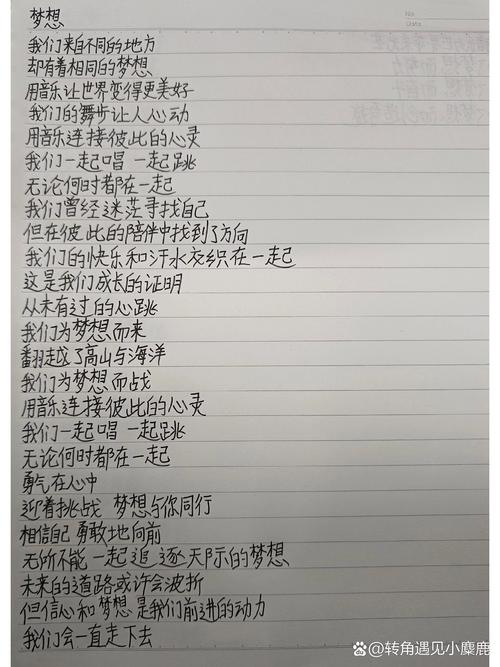 No.
Date
梦想
我们来自不同的地方
却有着相同的梦想
用音乐让世界变得更美好
我们的舞步让人心动
用音乐连接彼此的心灵
我们一起唱 一起跳
无论何时都在一起
我们曾经迷茫寻找自己
但在彼此的陪伴中找到了方向
我们的快乐和汗水交织在一起
这是我们成长的证明
从未有过的心跳
我们为梦想而来
翻越了高山与海洋
我们为梦想而战
用音乐连接彼此的心灵
我们一起唱 一起跳
无论何时都在一起
勇气在心中
迎着挑战 梦想与你同行
相信自己 勇敢地向前
无所不能 一起追逐天际的梦想
未来的道路或许会波折
但信心和梦想 是我们前进的动力
我们会一直走下去
@转角遇见小麋鹿